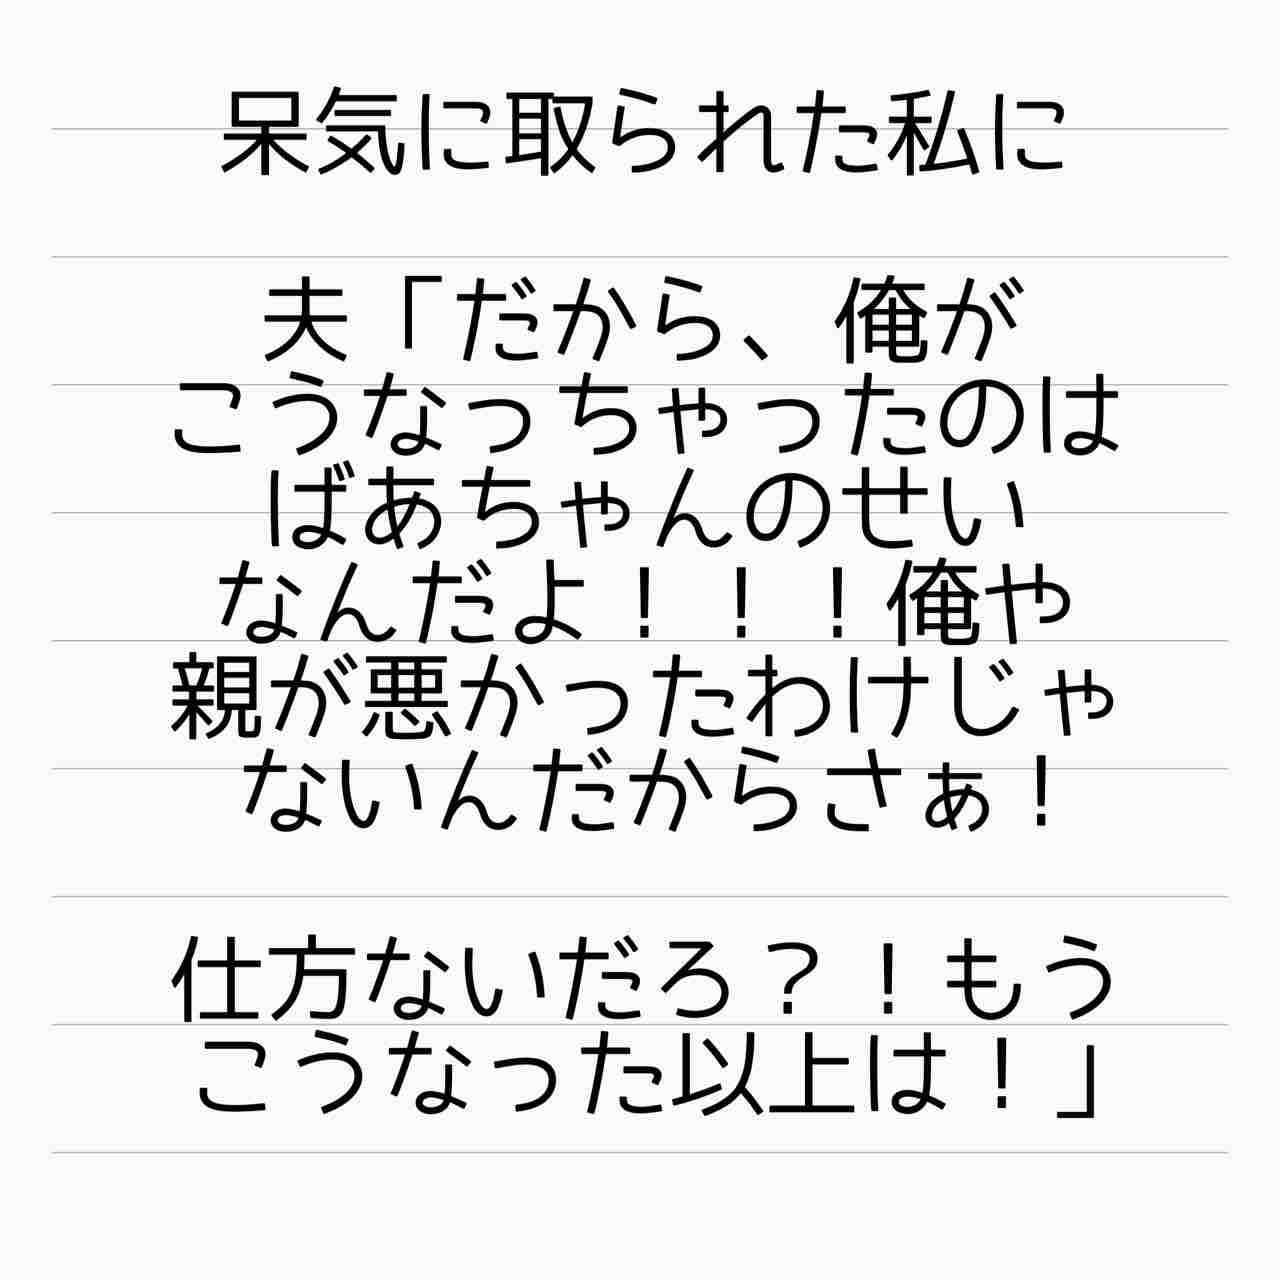 呆気に取られた私に
夫「だから、俺が
こうなっちゃったのは
ばあちゃんのせい
なんだよ！！！俺や
親が悪かったわけじゃ
ないんだからさぁ！
仕方ないだろ？！もう
こうなった以上は！」